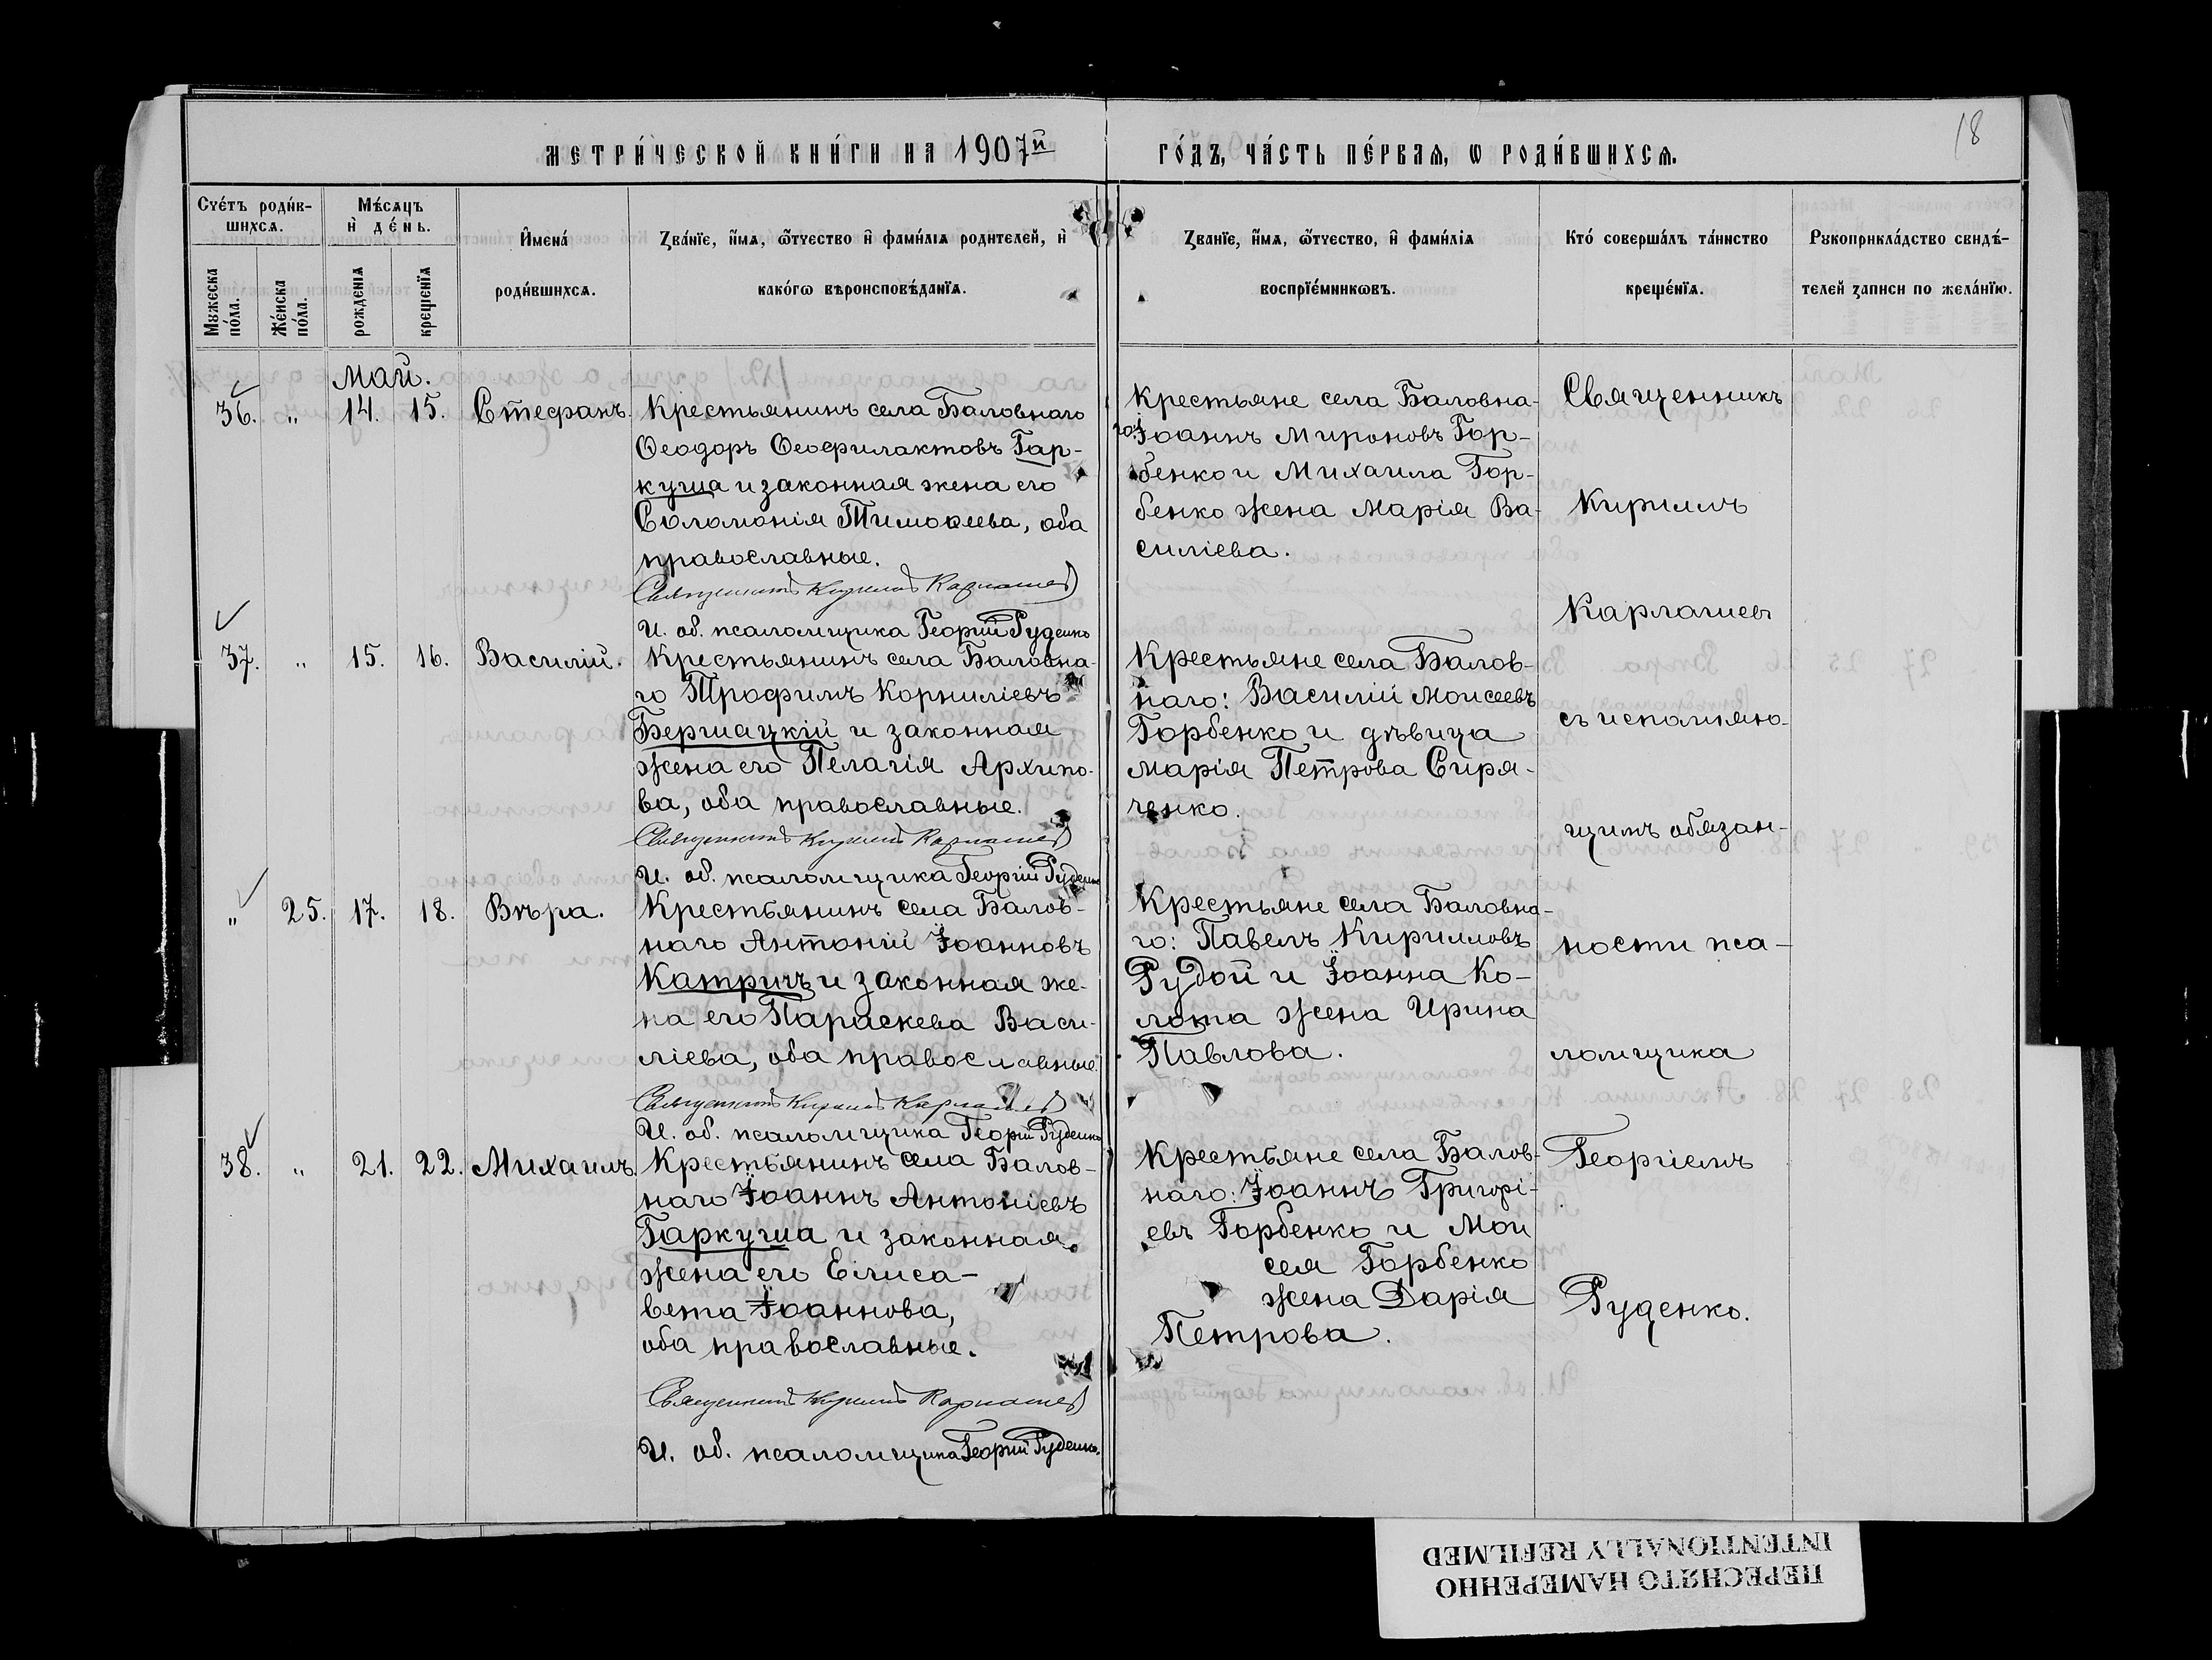 МЕТРИ́ЧЕСКОЙ КНИ́ГИ НА 1907й
ГО́ДЪ, ЧА́СТЬ ПЕ́РВАЯ, Ѡ РОДИ́ВШИХСѦ.
18
Сче́тъ роди́в-
шихсѧ.
Мѣ́сѧцъ
и҆ де́нь.
Мꙋжеска
по́ла.
Же́нска
по́ла.
рожденїѧ
крещенїѧ
И҆мена́
роди́вшихсѧ.
Зва́нїе, и҆́мѧ, ѻ҆́тчество и҆ фами́лїѧ родителей, и҆
како́гѡ вѣроисповѣ́данїѧ.
Званїе, и҆́мѧ, ѻ҆́тчество, и҆ фами́лїѧ
воспрїе́мниковъ.
Кто́ соверша́лъ та́инство
креще́нїѧ.
Рꙋкоприкла́дство свидѣ́-
телей записи по жела́нїю.
Май.
36. " 14. 15. Стефанъ.
Крестьянинъ села Баловнаго
Ѳеодоръ Ѳеофилактовъ Гар-
куша и законная жена его
Соломонія Тимоѳеева, оба
православные.
Священникъ Кирилъ Карпашев
И. об. псаломщика Георгій Руденко
Крестьяне села Баловна-
го: Іоаннъ Мироновъ Гор-
бенко и Михаила Гор-
бенко жена Марія Ва-
силіева.
37. " 15. 16. Василій.
Крестьянинъ села Баловна-
го Трофимъ Корниліевъ
Бершацкій и законная
жена его Пелагія Архипо-
ва, оба православные.
Священникъ Кирилъ Карпашев
И. об. псаломщика Георгій Руденко
Крестьяне села Балов-
наго: Василій Моисеевъ
Горбенко и дѣвица
Марія Петрова Сиря-
ченко.
" 25. 17. 18. Вѣра.
Крестьянинъ села Балов-
наго Антоній Іоанновъ
Катричъ и законная же-
на его Параскева Васи-
ліева, оба православные.
Священникъ Кирилъ Карпашев
И. об. псаломщика Георгій Руденко
Крестьяне села Баловна-
го: Павелъ Кирилловъ
Рудой и Іоанна Ко-
лота жена Ирина
Павлова.
38. " 21. 22. Михаилъ.
Крестьянинъ села Балов-
наго Іоаннъ Антоніевъ
Гаркуша и законная
жена его Елиса-
вета Іоаннова,
оба православные.
Священникъ Кирилъ Карпашев
И. об. псаломщика Георгій Руденко.
Крестьяне села Балов-
наго: Іоаннъ Григорі-
евъ Горбенко и Мои
сея Горбенко
жена Дарія
Петрова.
Священникъ
Кириллъ
Карпашевъ
съ исполняю-
щимъ обязан-
ности пса-
ломщика
Георгіемъ
Руденко.
ПЕРЕСНЯТО НАМЕРЕННО
INTENTIONALLY REFILMED